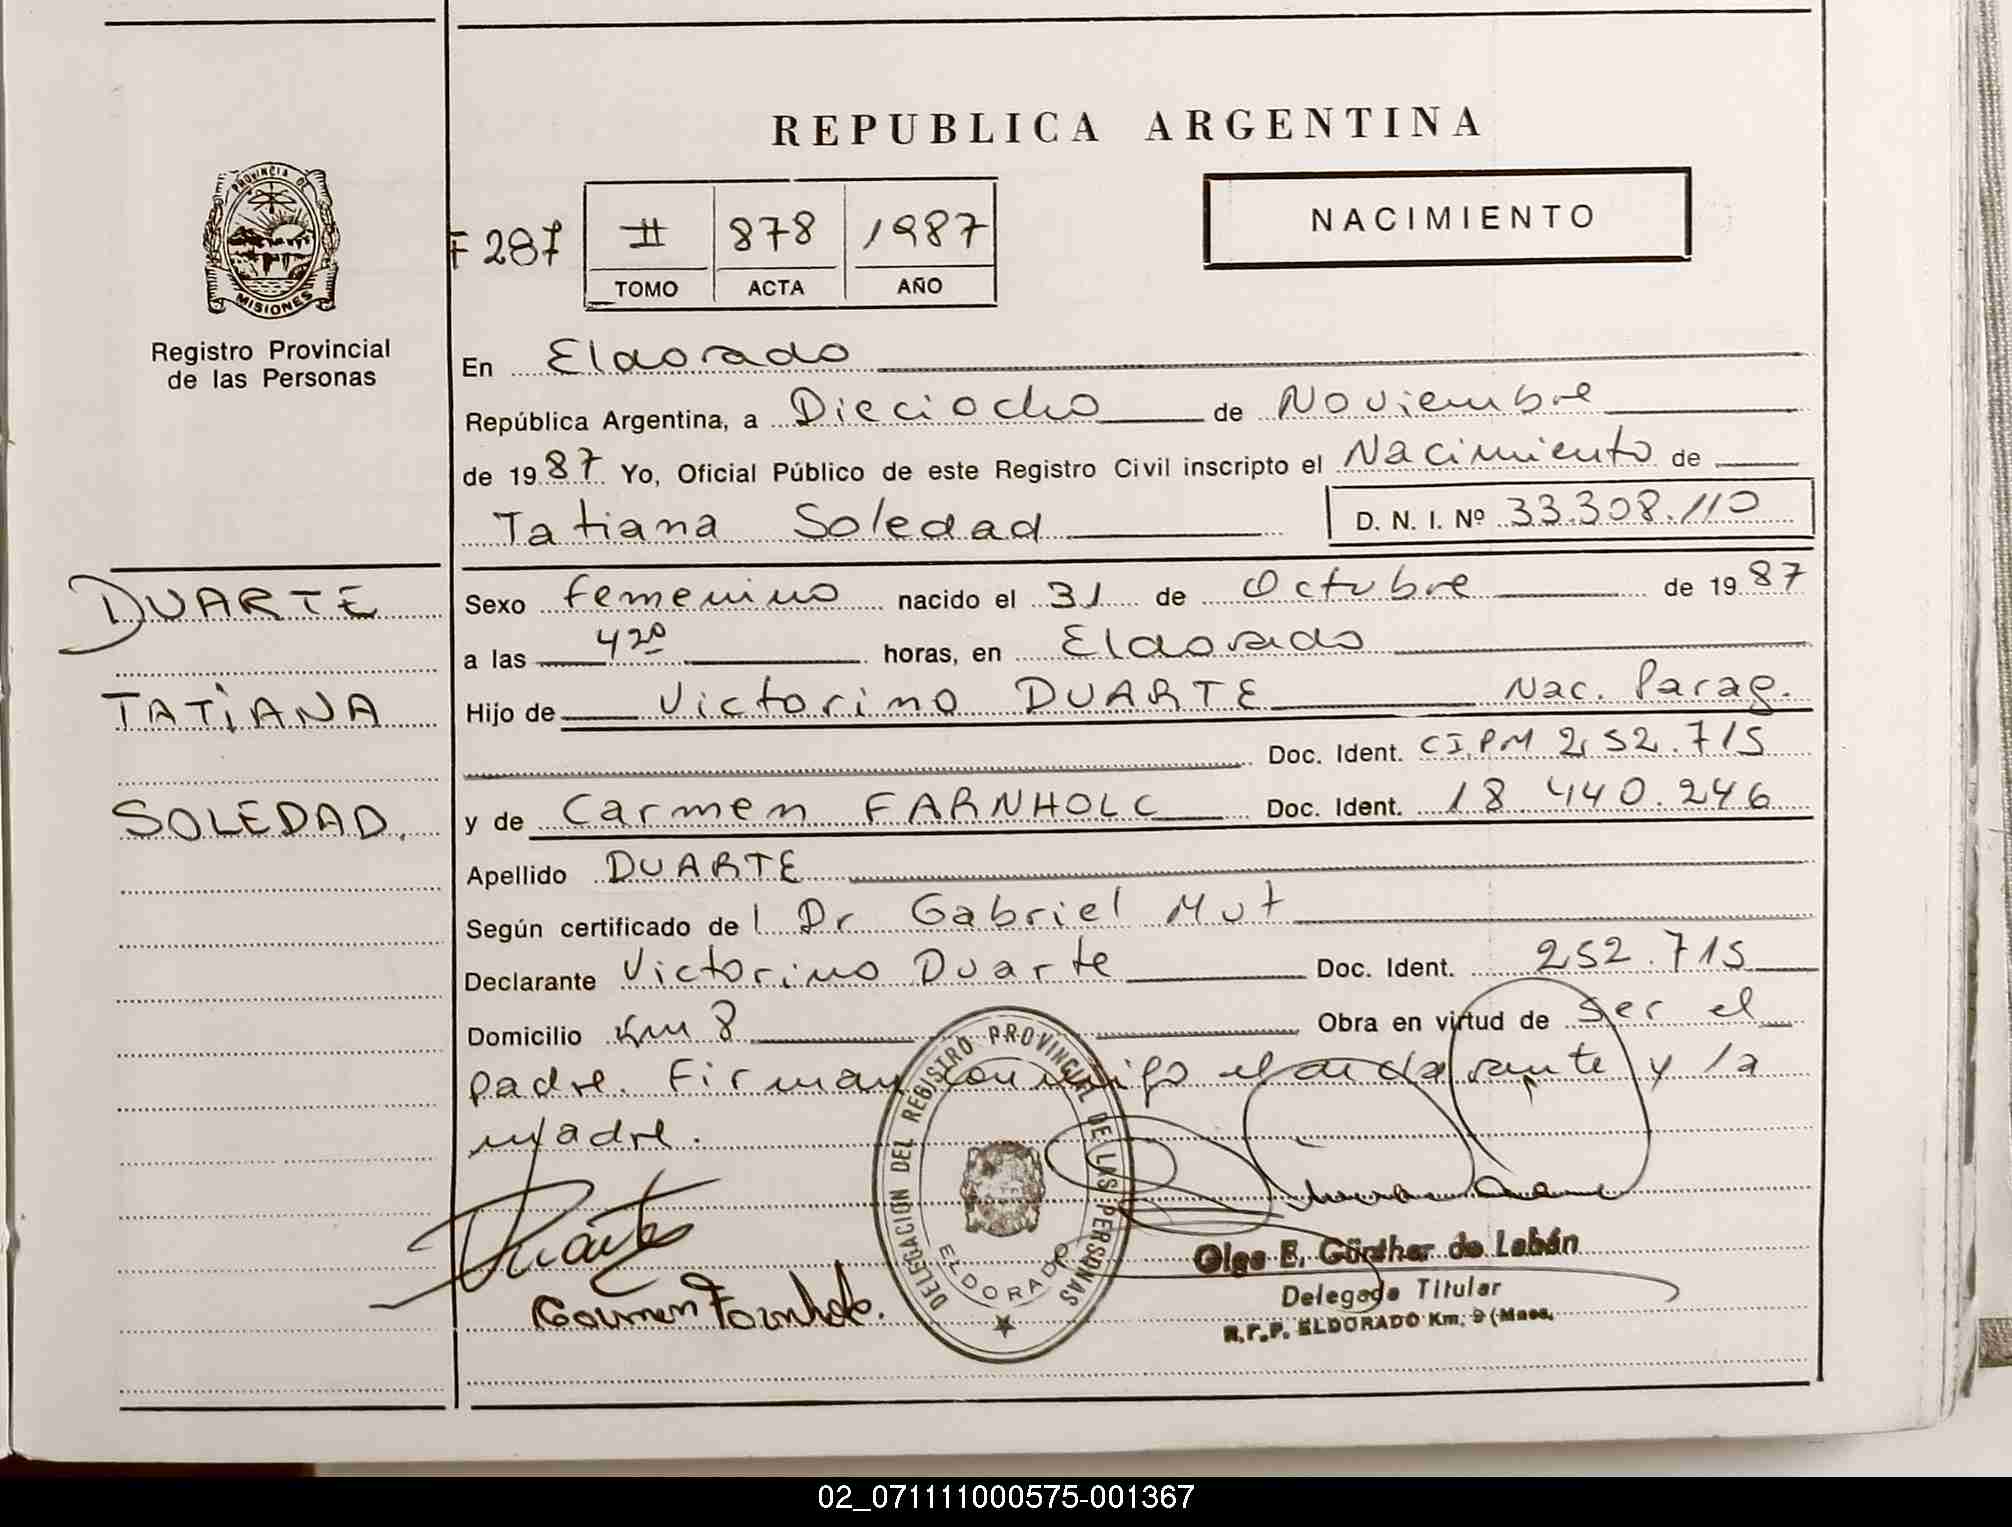 REPUBLICA ARGENTINA
PROVINCIA DE
MISIONES
Registro Provincial
de las Personas
F 287
II 878 1987
TOMO ACTA AÑO
NACIMIENTO
En Eldorado
República Argentina, a Dieciocho de Noviembre
de 1987 Yo, Oficial Público de este Registro Civil inscripto el Nacimiento de
Tatiana Soledad D. N. I. Nº 33.308.110
DUARTE
TATIANA
SOLEDAD.
Sexo femenino nacido el 31 de Octubre de 1987
a las 4 20 horas, en Eldorado
Hijo de Victorino DUARTE Nac. Parag.
Doc. Ident. CI.PM 252.715
y de Carmen FARNHOLC Doc. Ident. 18 440.246
Apellido DUARTE
Según certificado de l Dr Gabriel Mut
Declarante Victorino Duarte Doc. Ident. 252.715
Domicilio Km 8 Obra en virtud de ser el
padre. Firman conmigo el declarante y la
madre.
Duarte
Carmen Farnholc.
DELEGACION DEL REGISTRO PROVINCIAL DE LAS PERSONAS
ELDORADO
Olga E. Günther de Labán
Delegada Titular
R.P.P. ELDORADO Km. 9 (Mnes.
02_071111000575-001367